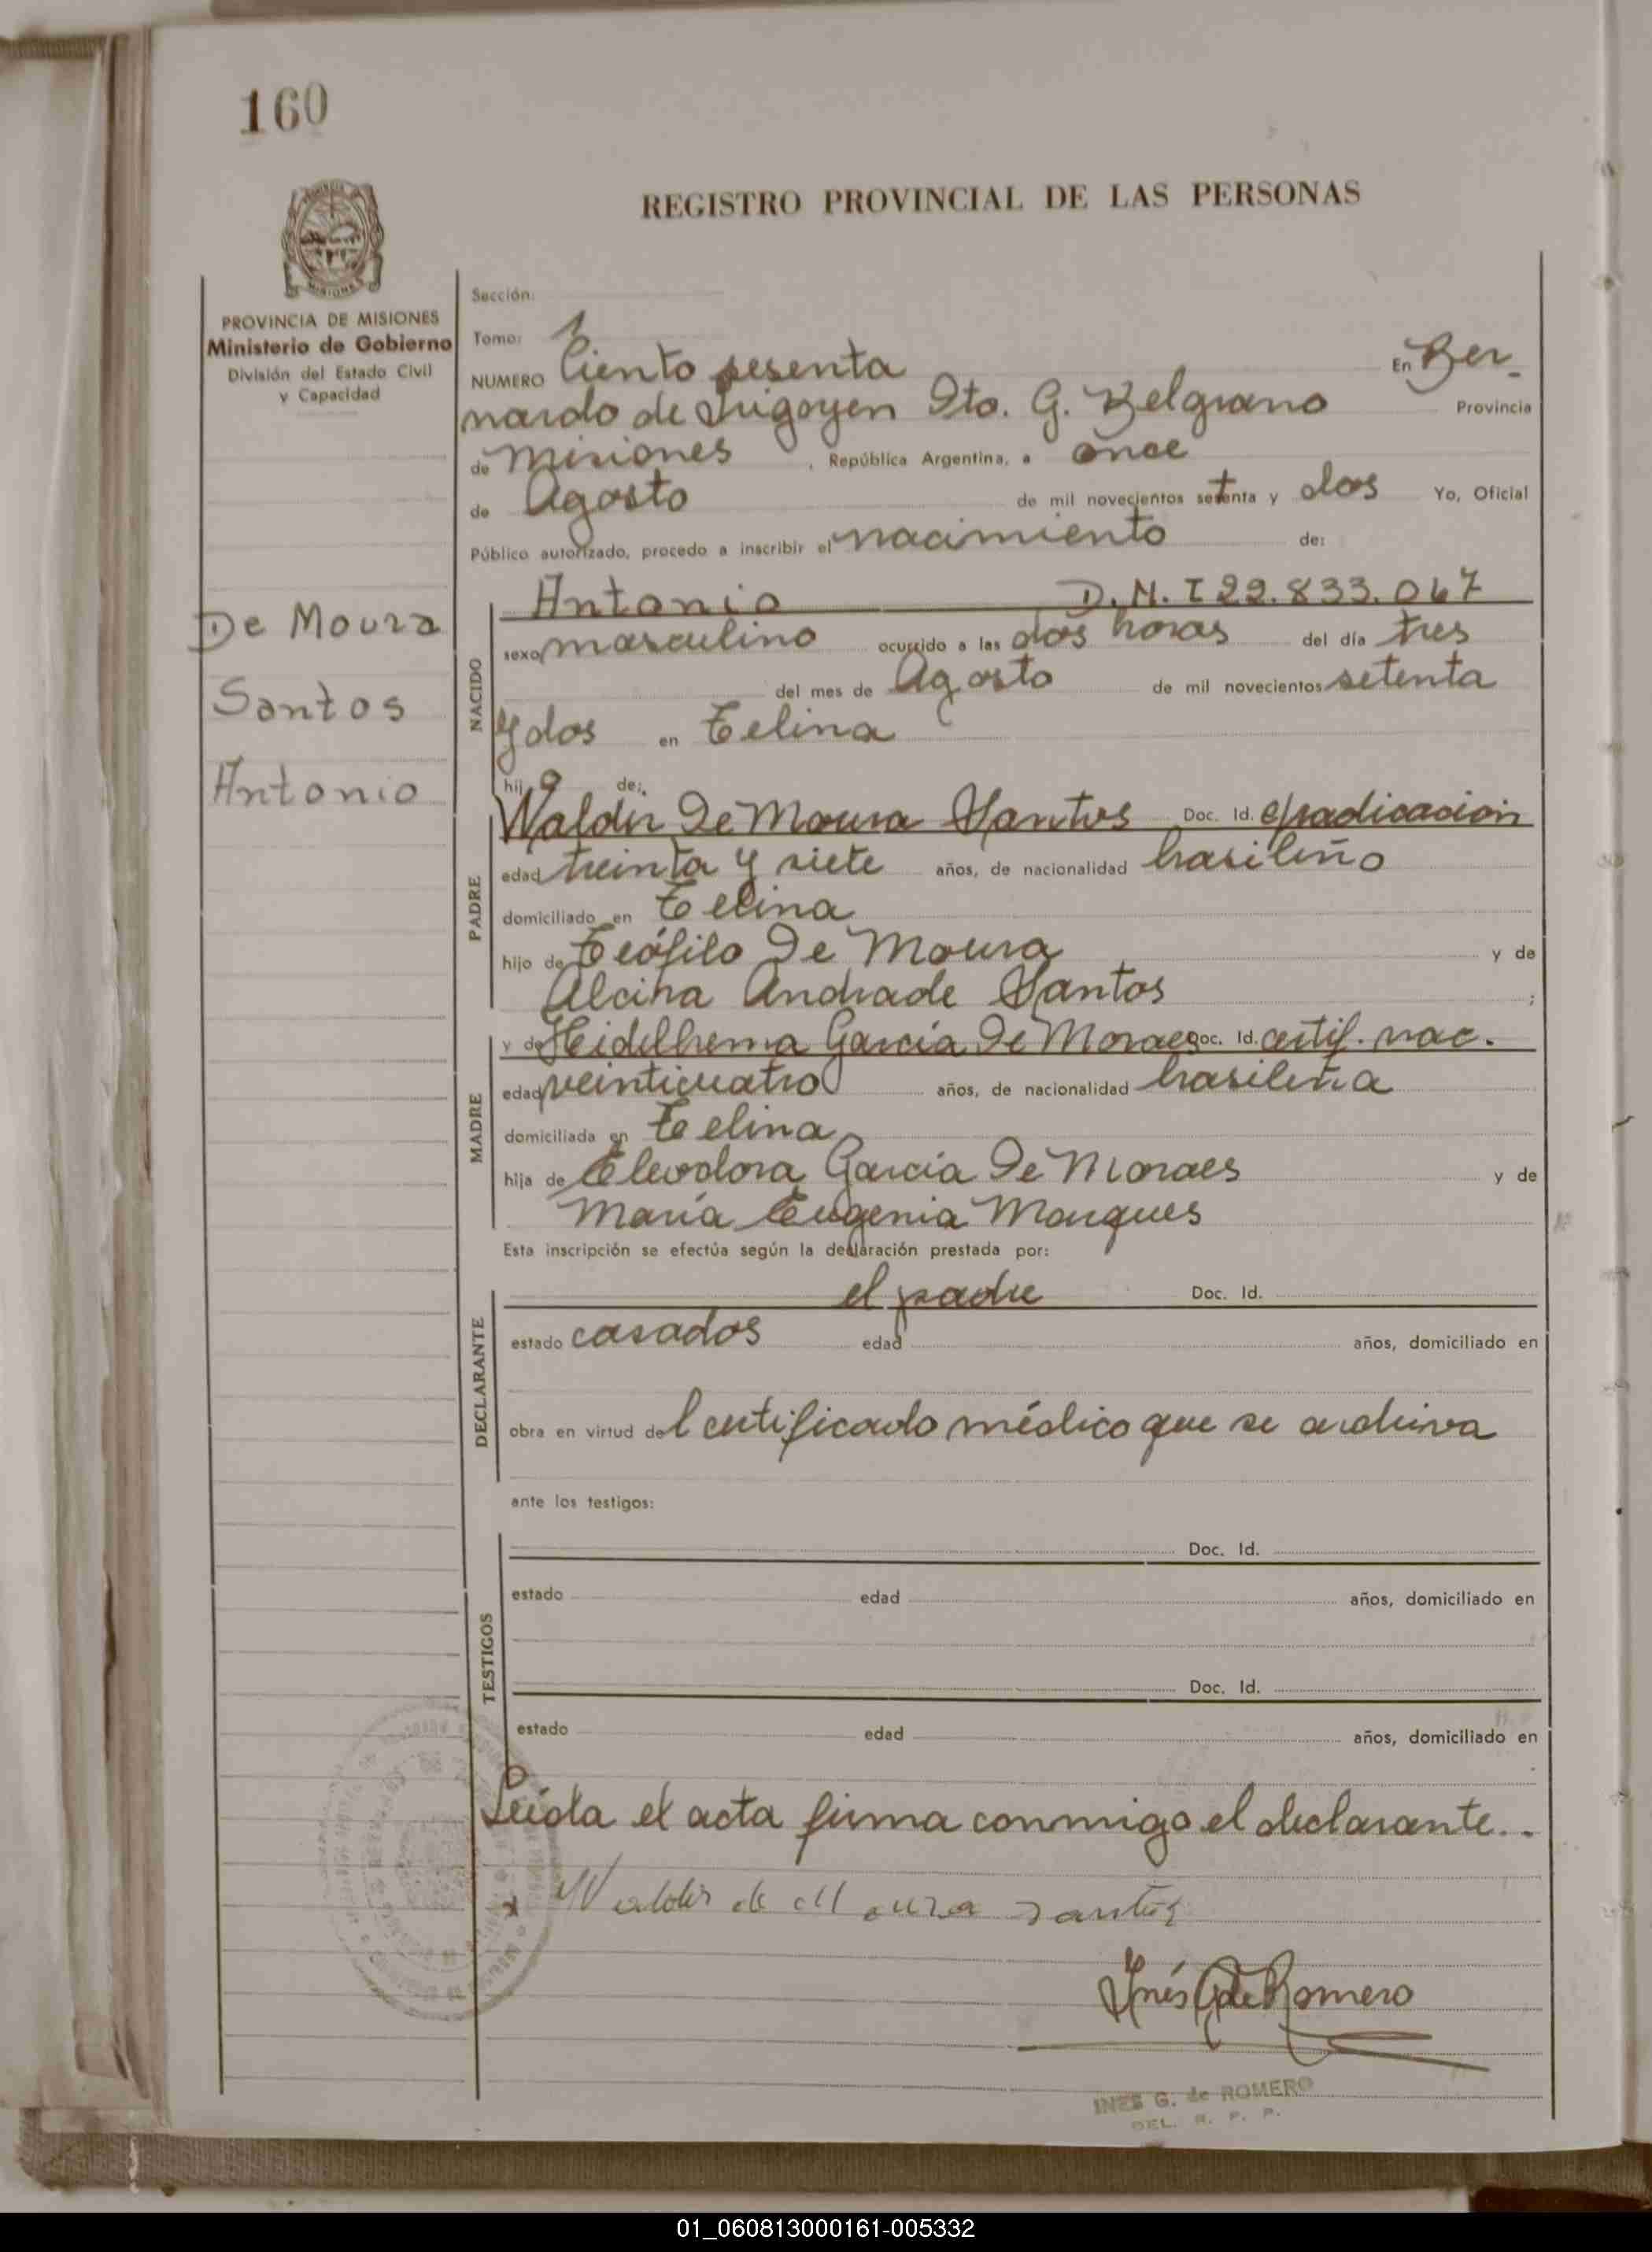 160
REGISTRO PROVINCIAL DE LAS PERSONAS
MISIONES
PROVINCIA DE MISIONES
Ministerio de Gobierno
División del Estado Civil
y Capacidad
De Moura
Santos
Antonio
Sección:
Tomo: 1
NUMERO Ciento sesenta En Ber-
nardo de Irigoyen Dto. G. Belgrano Provincia
de Misiones , República Argentina, a once
de Agosto de mil novecientos setenta y dos Yo, Oficial
Público autorizado, procedo a inscribir el nacimiento de:
NACIDO
Antonio D.N.I 22.833.067
sexo masculino ocurrido a las dos horas del día tres
del mes de Agosto de mil novecientos setenta
y dos en Telina
hijo de:
PADRE
Waldir De Moura Santos Doc. Id. c/radicación
edad treinta y siete años, de nacionalidad brasileño
domiciliado en Telina
hijo de Teófilo De Moura y de
Alcina Andrade Santos ;
MADRE
y de Heidelhema García De Moraes Doc. Id. certif. nac.
edad veinticuatro años, de nacionalidad brasileña
domiciliada en Telina
hija de Eleodora García De Moraes y de
María Eugenia Marques
Esta inscripción se efectúa según la declaración prestada por:
DECLARANTE
el padre Doc. Id.
estado casados edad años, domiciliado en
obra en virtud del certificado médico que se archiva
ante los testigos:
TESTIGOS
Doc. Id.
estado edad años, domiciliado en
Doc. Id.
estado edad años, domiciliado en
Leída el acta firma conmigo el declarante..
x Waldir de Moura Santos
Inés G de Romero
INES G. de ROMERO
DEL. R. P. P.
01_060813000161-005332